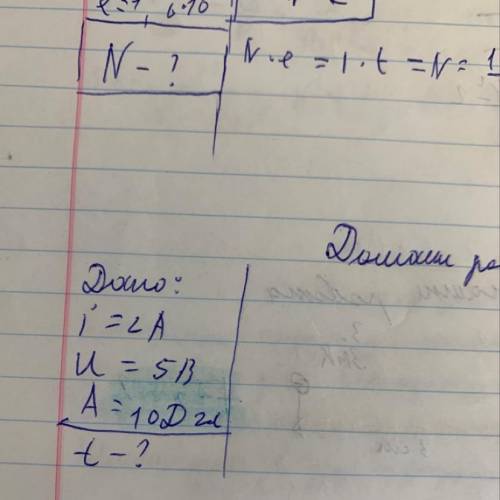 e=1,6·10
N - ?
N·e = I·t = N = 1
Домашн ра
Дано:
i = 2A
U = 5B
A = 10Дж
t - ?